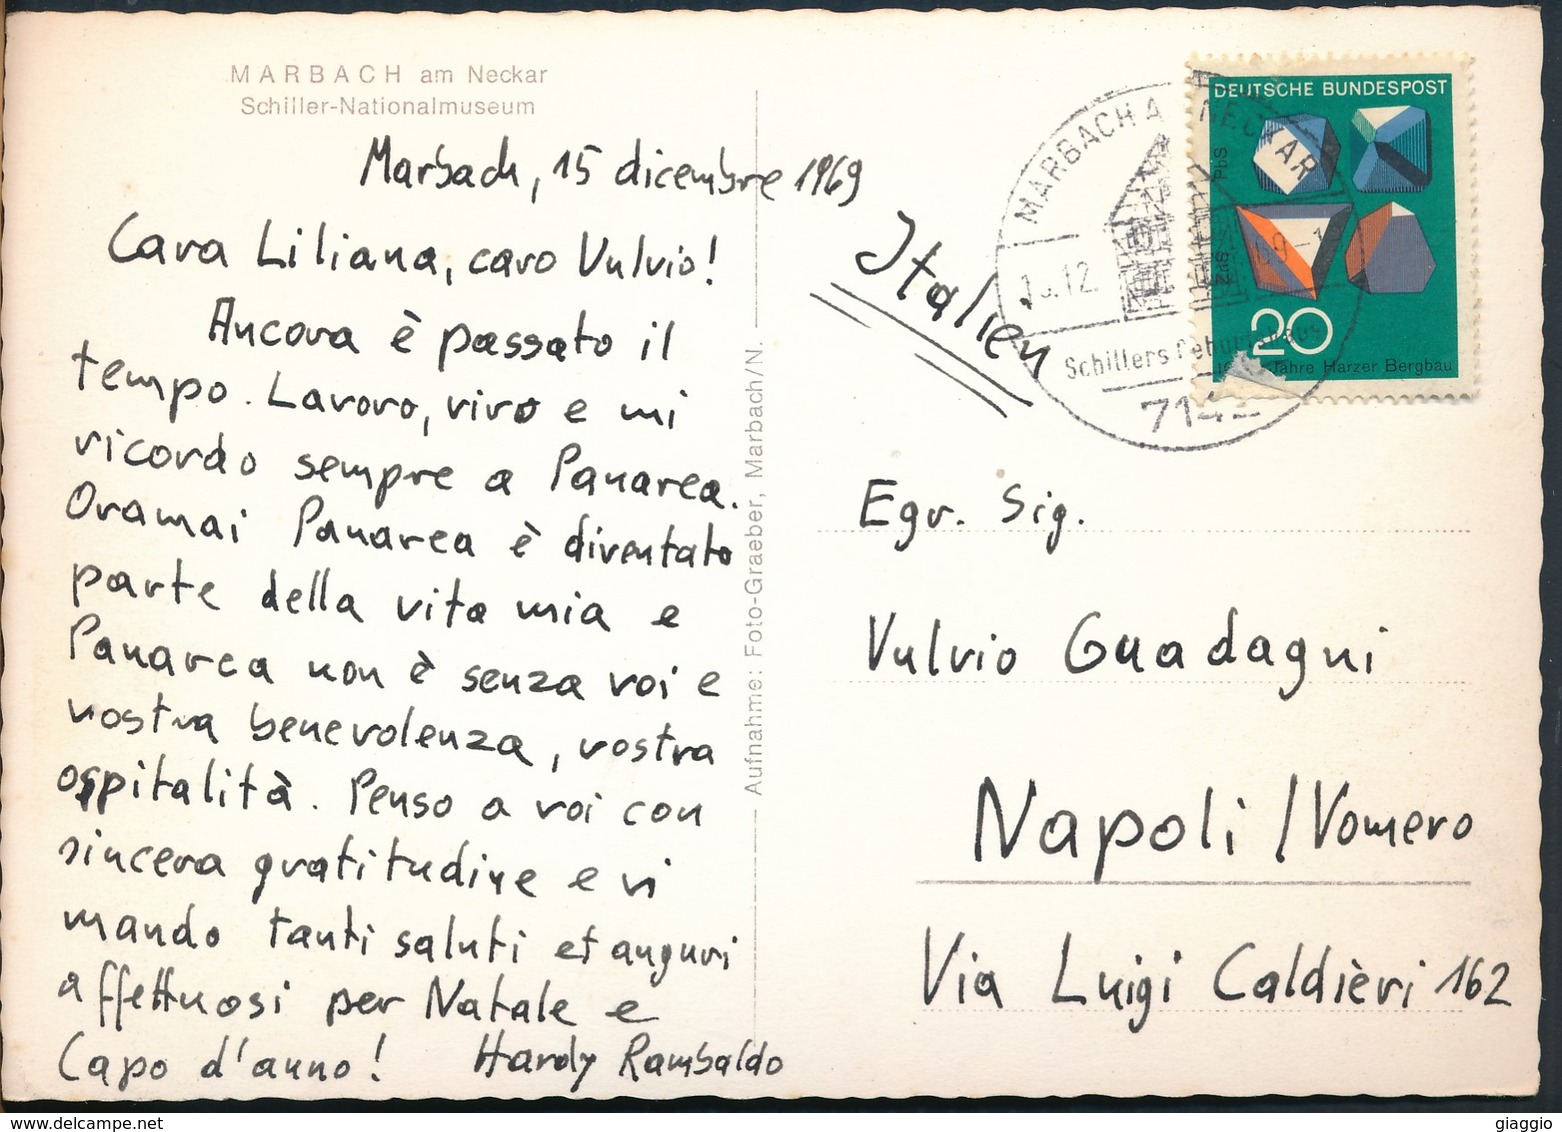 MARBACH am Neckar
Schiller-Nationalmuseum
Marbach, 15 dicembre 1969
Cara Liliana, caro Vulvio!
Ancora è passato il
tempo. Lavoro, vivo e mi
ricordo sempre a Panarea.
Oramai Panarea è diventato
parte della vita mia e
Panarea non è senza voi e
vostra benevolenza, vostra
ospitalità. Penso a voi con
sincera gratitudine e vi
mando tanti saluti et auguri
affettuosi per Natale e
Capo d'anno! Hardy Rambaldo
Aufnahme: Foto-Graeber, Marbach/N.
Italien
DEUTSCHE BUNDESPOST
PbS
ZnS
20
Jahre Harzer Bergbau
MARBACH A. NECKAR
.12. 69-1
Schillers Geburtshaus
7142
Egr. Sig.
Vulvio Guadagni
Napoli / Vomero
Via Luigi Caldièri 162
giaggio
delcampe.net